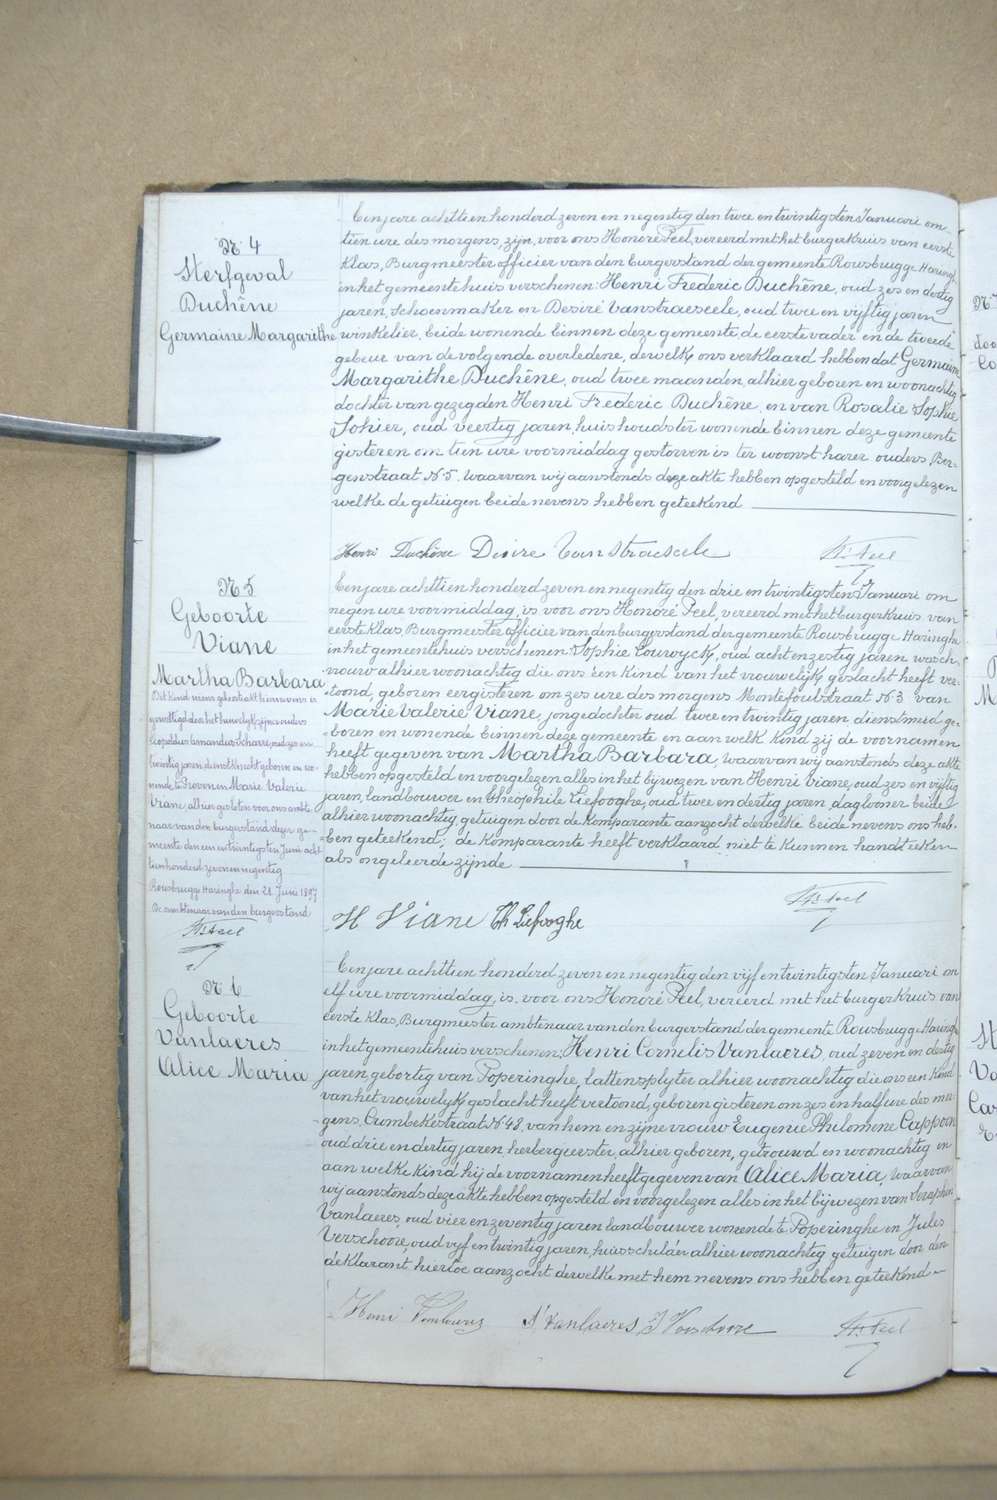 Nr 4
Sterfgeval
Duchêne
Germaine Margarithe
Tenjare achttien honderd zeven en negentig den twee en twintigsten Januari om
tien ure des morgens, zijn, voor ons Honoré Peel, vereerd met het burgerkruis van eerste
klas, Burgmeester officier van den burgerstand der gemeente Rousbrugge Haringhe
in het gemeentehuis verschenen: Henri Frederic Duchêne, oud zes en dertig
jaren, schoenmaker en Desiré Vanstraeseele, oud twee en vijftig jaren
winkelier, beide wonende binnen deze gemeente, de eerste vader en de tweede
gebuur van de volgende overledene, dewelke ons verklaard hebben dat Germaine
Margarithe Duchêne, oud twee maanden, alhier geboren en woonachtig
dochter van gezegden Henri Frederic Duchêne, en van Rosalie Sophie
Sohier, oud veertig jaren, huishoudster wonende binnen deze gemeente
gisteren om tien ure voormiddag gestorven is ter woonst harer ouders, Ber-
genstraat N 5. waarvan wij aanstonds deze akte hebben opgesteld en voorgelezen
welke de getuigen beide nevens hebben geteekend
Henri Duchêne Desire Vanstraeseele Hré Peel
Nr 5
Geboorte
Viane
Martha Barbara
Dit kind nevens gelaat echt
gewettigd door het huwelijk zijner ouders
Leopoldus Amandus Scharre, oud zes en
twintig jaren dienstknecht geboren en wo-
nende te Proven en Marie Valerie
Viane, alhier gesloten voor ons ambte-
naar van den burgerstand dezer ge-
meente den een en twintigsten Juni acht-
tienhonderd zeven en negentig
Rousbrugge Haringhe den 21 Juni 1897
De ambtenaar van den burgerstand
Hré Peel
Tenjare achttien honderd zeven en negentig den drie en twintigsten Januari om
negen ure voormiddag, is voor ons Honoré Peel, vereerd met het burgerkruis van
eerste klas, Burgmeester officier van den burgerstand der gemeente Rousbrugge Haringhe
in het gemeentehuis verschenen: Sophie Couwyck, oud acht en zestig jaren wasch-
vrouw alhier woonachtig die ons een kind van het vrouwelijk geslacht heeft ver-
toond, geboren eergisteren om zes ure des morgens Montefoulstraat N 3 van
Marie Valerie Viane, jongedochter oud twee en twintig jaren dienstmeid ge-
boren en wonende binnen deze gemeente en aan welk kind zij de voornamen
heeft gegeven van Martha Barbara, waarvan wij aanstonds deze akte
hebben opgesteld en voorgelezen alles in het bijwezen van Henri Viane, oud zes en vijftig
jaren, landbouwer en Theophile Liefooghe, oud twee en dertig jaren, daglooner beide
alhier woonachtig, getuigen door de komparante aanzocht derwelke beide nevens ons heb-
ben geteekend; de komparante heeft verklaard niet te kunnen handteeken
als ongeleerde zijnde
H Viane Th Liefooghe Hré Peel
Nr 6
Geboorte
Vanlaeres
Alice Maria
Tenjare achttien honderd zeven en negentig den vijf en twintigsten Januari om
elf ure voormiddag, is, voor ons Honoré Peel, vereerd met het burgerkruis van
eerste klas, Burgmeester ambtenaar van den burgerstand der gemeente Rousbrugge Haringhe
in het gemeentehuis verschenen: Henri Cornelis Vanlaeres, oud zeven en dertig
jaren, gebortig van Poperinghe, lattensplyter alhier woonachtig die ons een kind
van het vrouwelijk geslacht heeft vertoond, geboren gisteren om zes en half ure des mor-
gens, Crombekestraat N 48, van hem en zijne vrouw Eugenie Philomene Cappoen
oud drie en dertig jaren, herbergierster, alhier geboren, getrouwd en woonachtig en
aan welke kind hij de voornamen heeft gegeven van Alice Maria, waarvan
wij aanstonds deze akte hebben opgesteld en voorgelezen alles in het bijwezen van Seraphin
Vanlaeres, oud vier en zeventig jaren landbouwer wonende te Poperinghe en Jules
Verschoore, oud vijf en twintig jaren, huisschilder alhier woonachtig getuigen door den
deklarant hiertoe aanzocht derwelke met hem nevens ons hebben geteekend
Henri Vanlaeres S. Vanlaeres J Verschoore Hré Peel